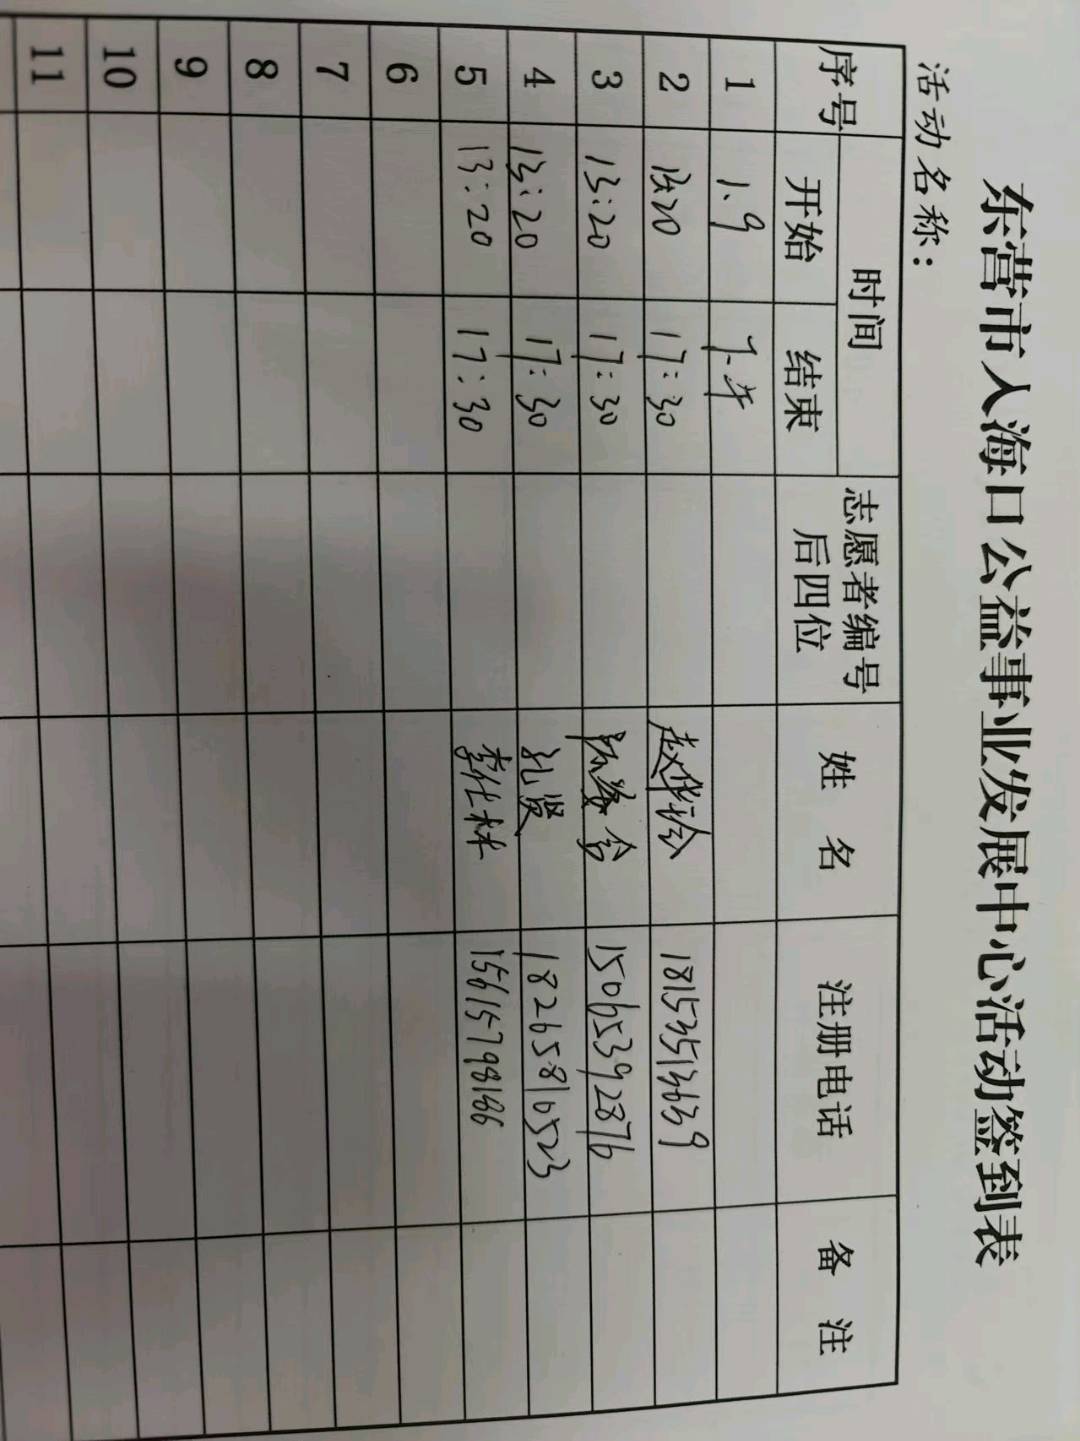 东营市入海口公益事业发展中心活动签到表
活动名称：
序号 时间 志愿者编号后四位 姓 名 注册电话 备 注
开始 结束
1 1.9 下午
2 13:20 17:30 18153513639
3 13:20 17:30 15065392876
4 13:20 17:30 孔贤 18265810523
5 13:20 17:30 李仕林 15615798186
6
7
8
9
10
11